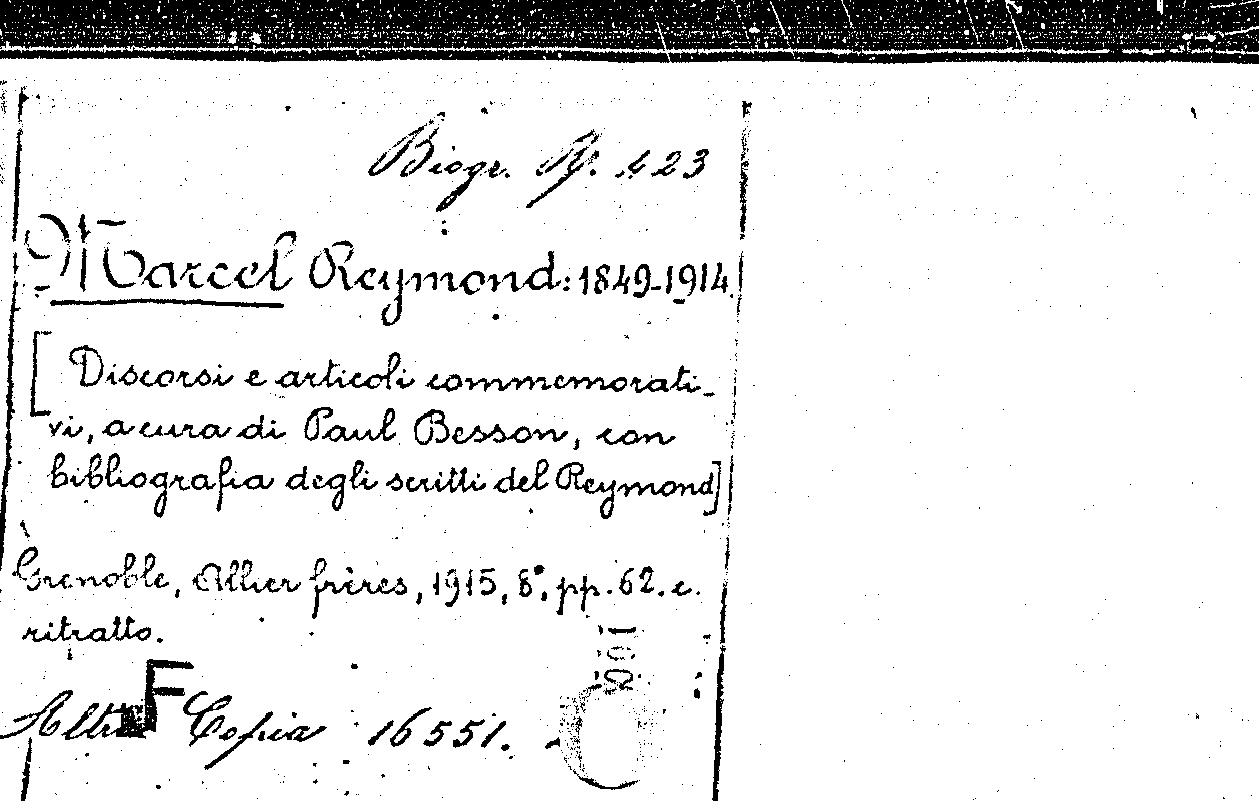 Biogr. Op. 423
Marcel Reymond: 1849-1914
[Discorsi e articoli commemorati-
vi, a cura di Paul Besson, con
bibliografia degli scritti del Reymond]
Grenoble, Allier frères, 1915, 8°, pp. 62. c.
ritratto.
F
Altra Copia 16551.